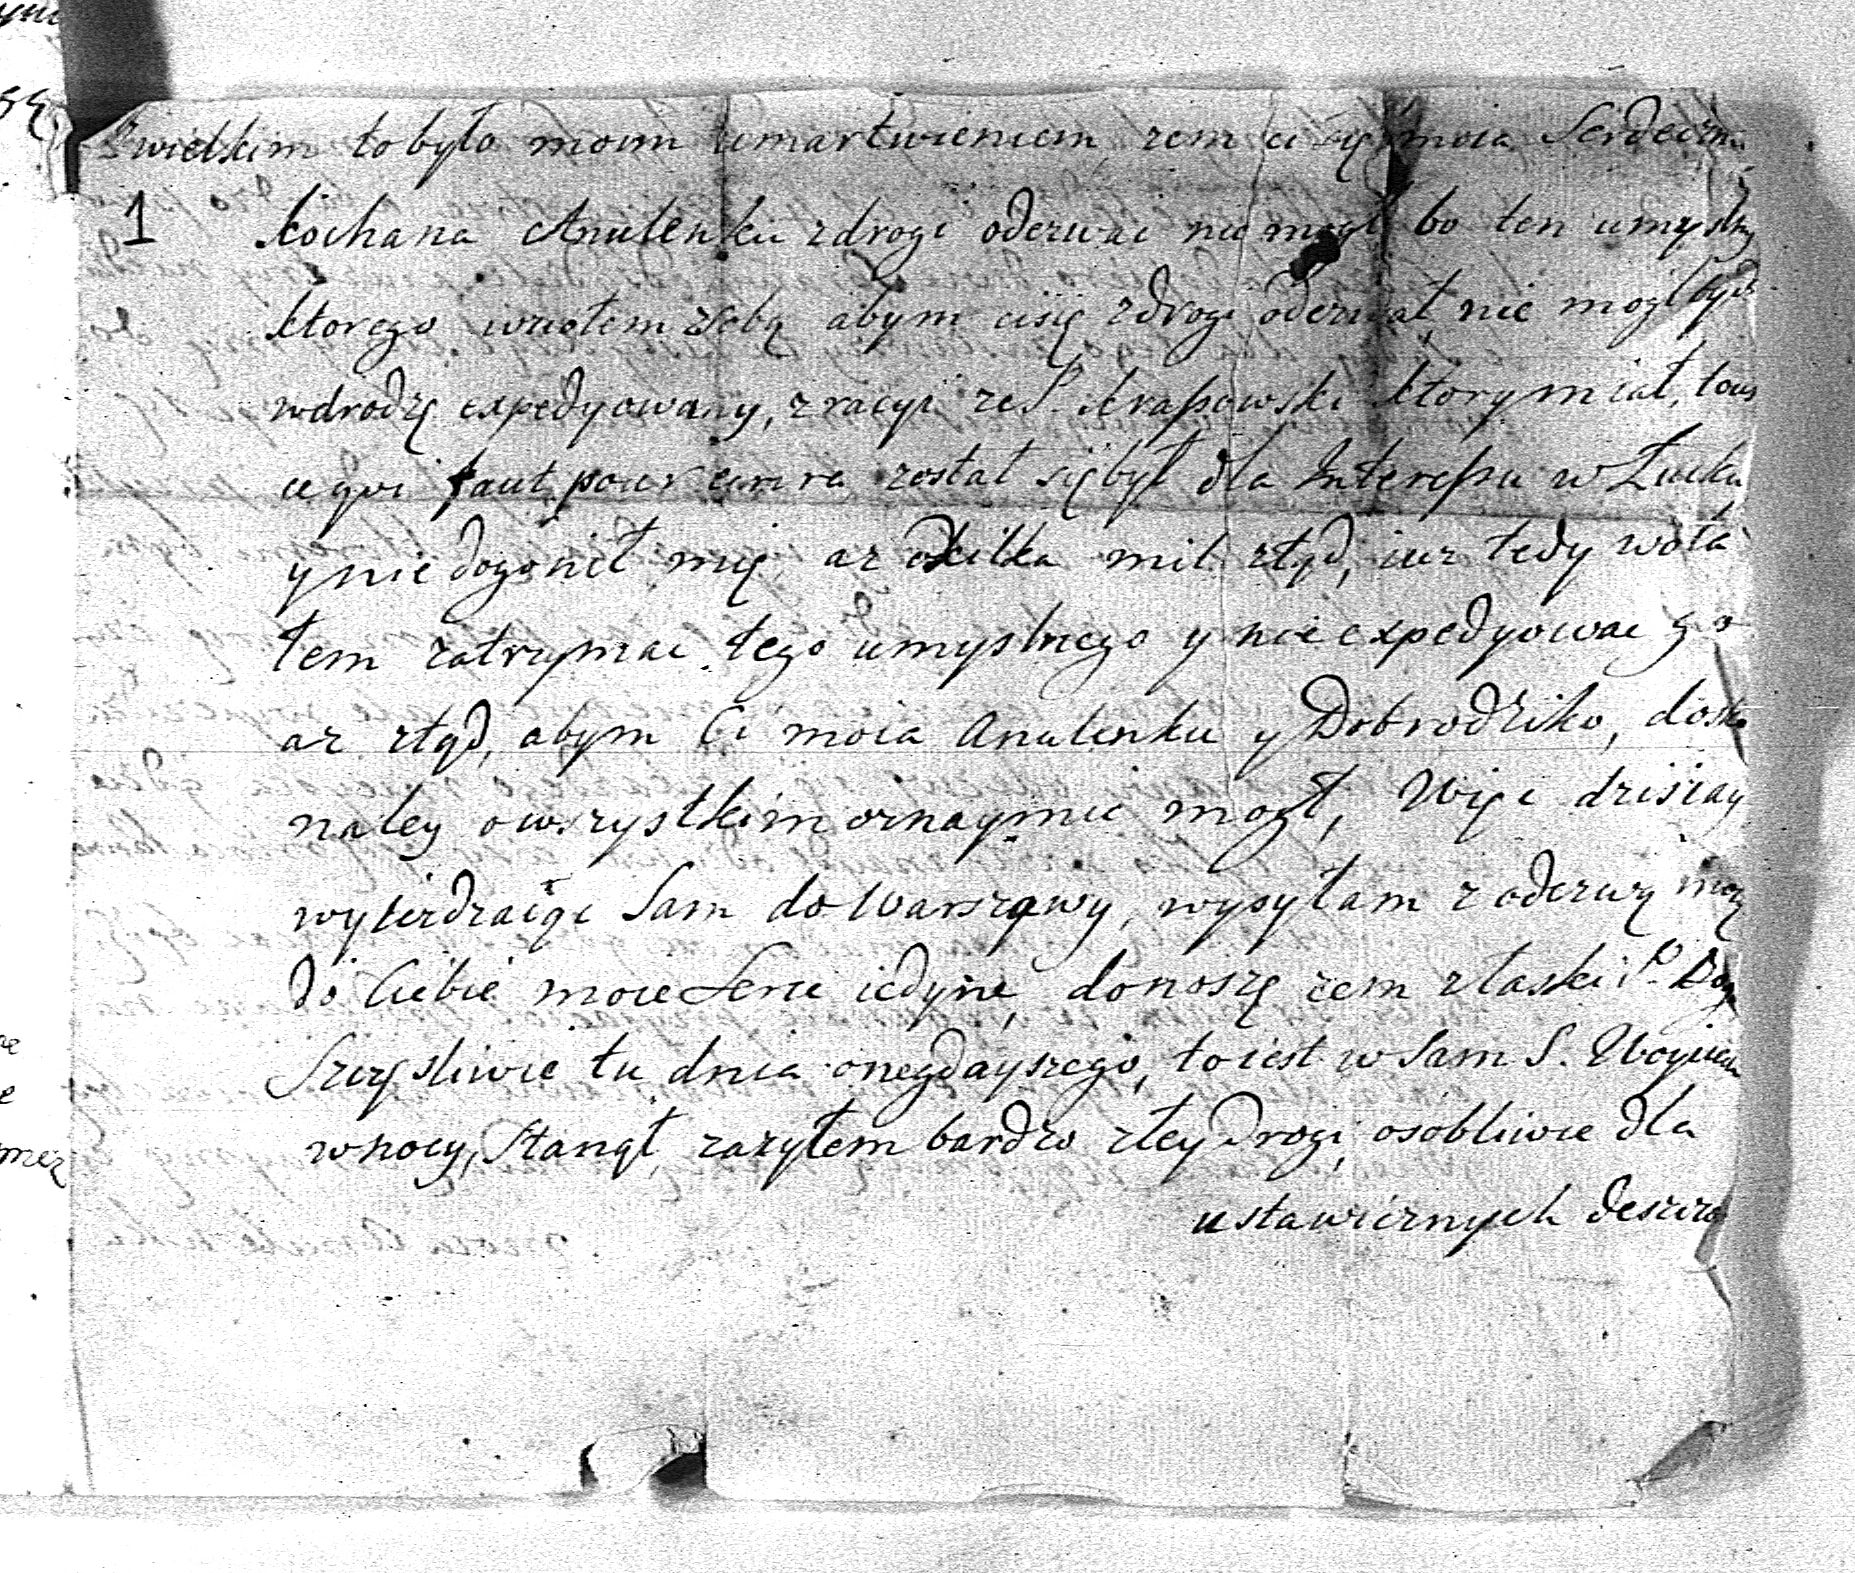 Z wielkim to było moim umartwieniem, żem ci się moia Serdeczna
1 kochana Anulenku z drogi odezwać nie mogł bo ten umyslny
ktorego wziołem z sobą abym ci się z drogi odezwał, nie mogł bydź
w drodzę expedyowany, z racyi że P. Krassowski ktory miał, tous
ce qui faut pour ecrire został się był dla Interessu w Łucku
y nie dogonił mię, aż o kilka mil ztąd, iuż tedy woła
łem zatrzymac tego umyslnego y nie expedyowac go
aż ztąd, abym Ci moia Anulenku y Dobrodziko, dosko
naley o wszystkim oznaymic mogł, Więc dzisiay
wyieżdzaiąc Sam do Warszawy, wysyłam z odezwą moią
do Ciebie moie Serce iedyne, donoszę żem z łaski P. Boga
Szczęsliwie tu dnia onegdayszego, to iest w Sam S. Woyciech
w nocy, Stanął, zażyłem bardzo złey Drogi, osobliwie dla
ustawicznych deszczo